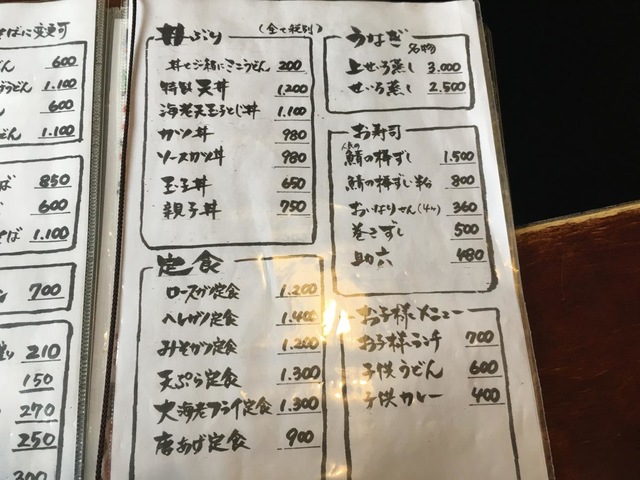 そばに変更可
どん 600
うどん 1.100
ん 600
ん 1.100
ば 850
600
そば 1.100
ン 700
210
150
270
250
300
丼ぶり (全て税別)
丼とご一緒にミニうどん 200
特製天丼 1.200
海老天玉子とじ丼 1.100
カツ丼 980
ソースカツ丼 980
玉子丼 650
親子丼 750
定食
ロースカツ定食 1.200
ヘレカツ定食 1.400
みそカツ定食 1.200
天ぷら定食 1.300
大海老フライ定食 1.300
唐あげ定食 900
うなぎ 名物
上せいろ蒸し 3.000
せいろ蒸し 2.500
お寿司
人気の
鯖の棒ずし 1.500
鯖の棒ずし半分 800
おいなりさん(4ヶ) 360
巻きずし 500
助六 480
お子様メニュー
お子様ランチ 700
子供うどん 600
子供カレー 400